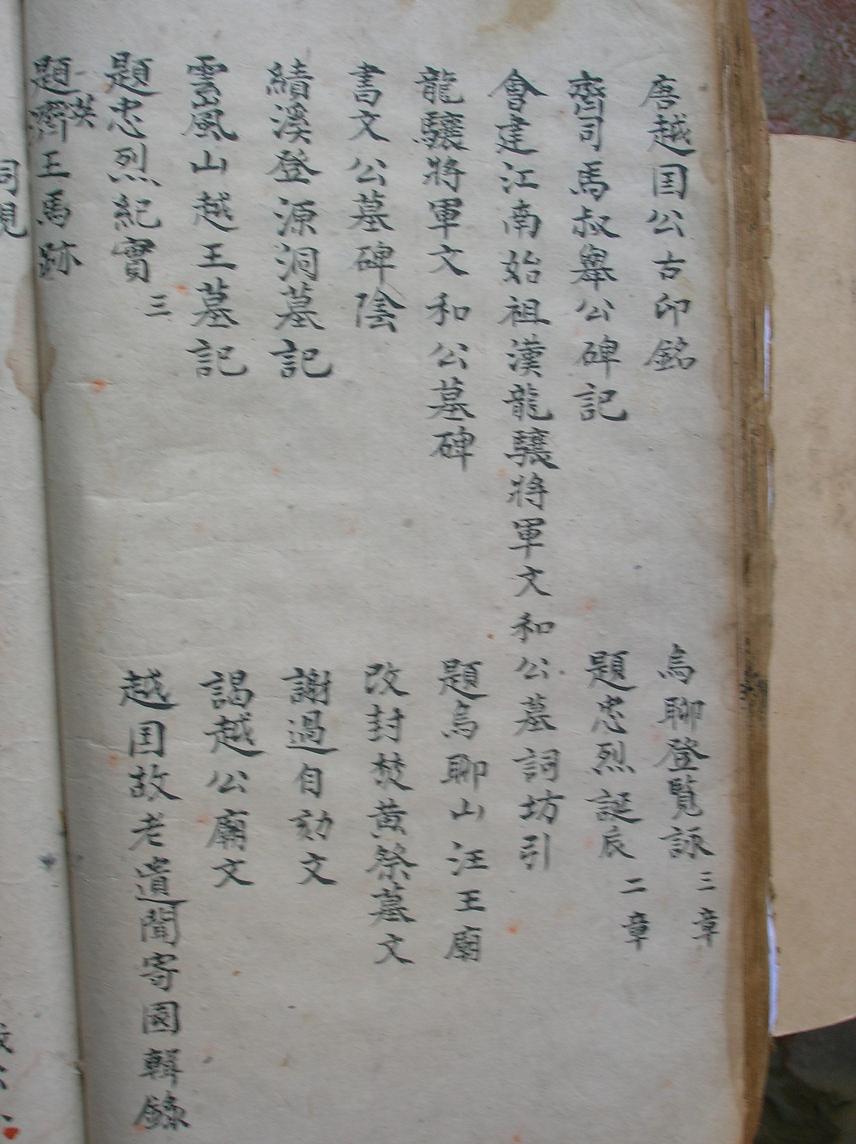 唐越国公古印銘
烏聊登覽詠三章
齊司馬叔舉公碑記
題忠烈誕辰二章
會建江南始祖漢龍驤將軍文和公墓詞坊引
龍驤將軍文和公墓碑
題烏聊山汪王廟
書文公墓碑陰
改封焚黄祭墓文
績溪登源洞墓記
謝過自劾文
雲風山越王墓記
謁越公廟文
題忠烈紀實三
越国故老遺聞寄園輯錄
題齊王馬跡
英